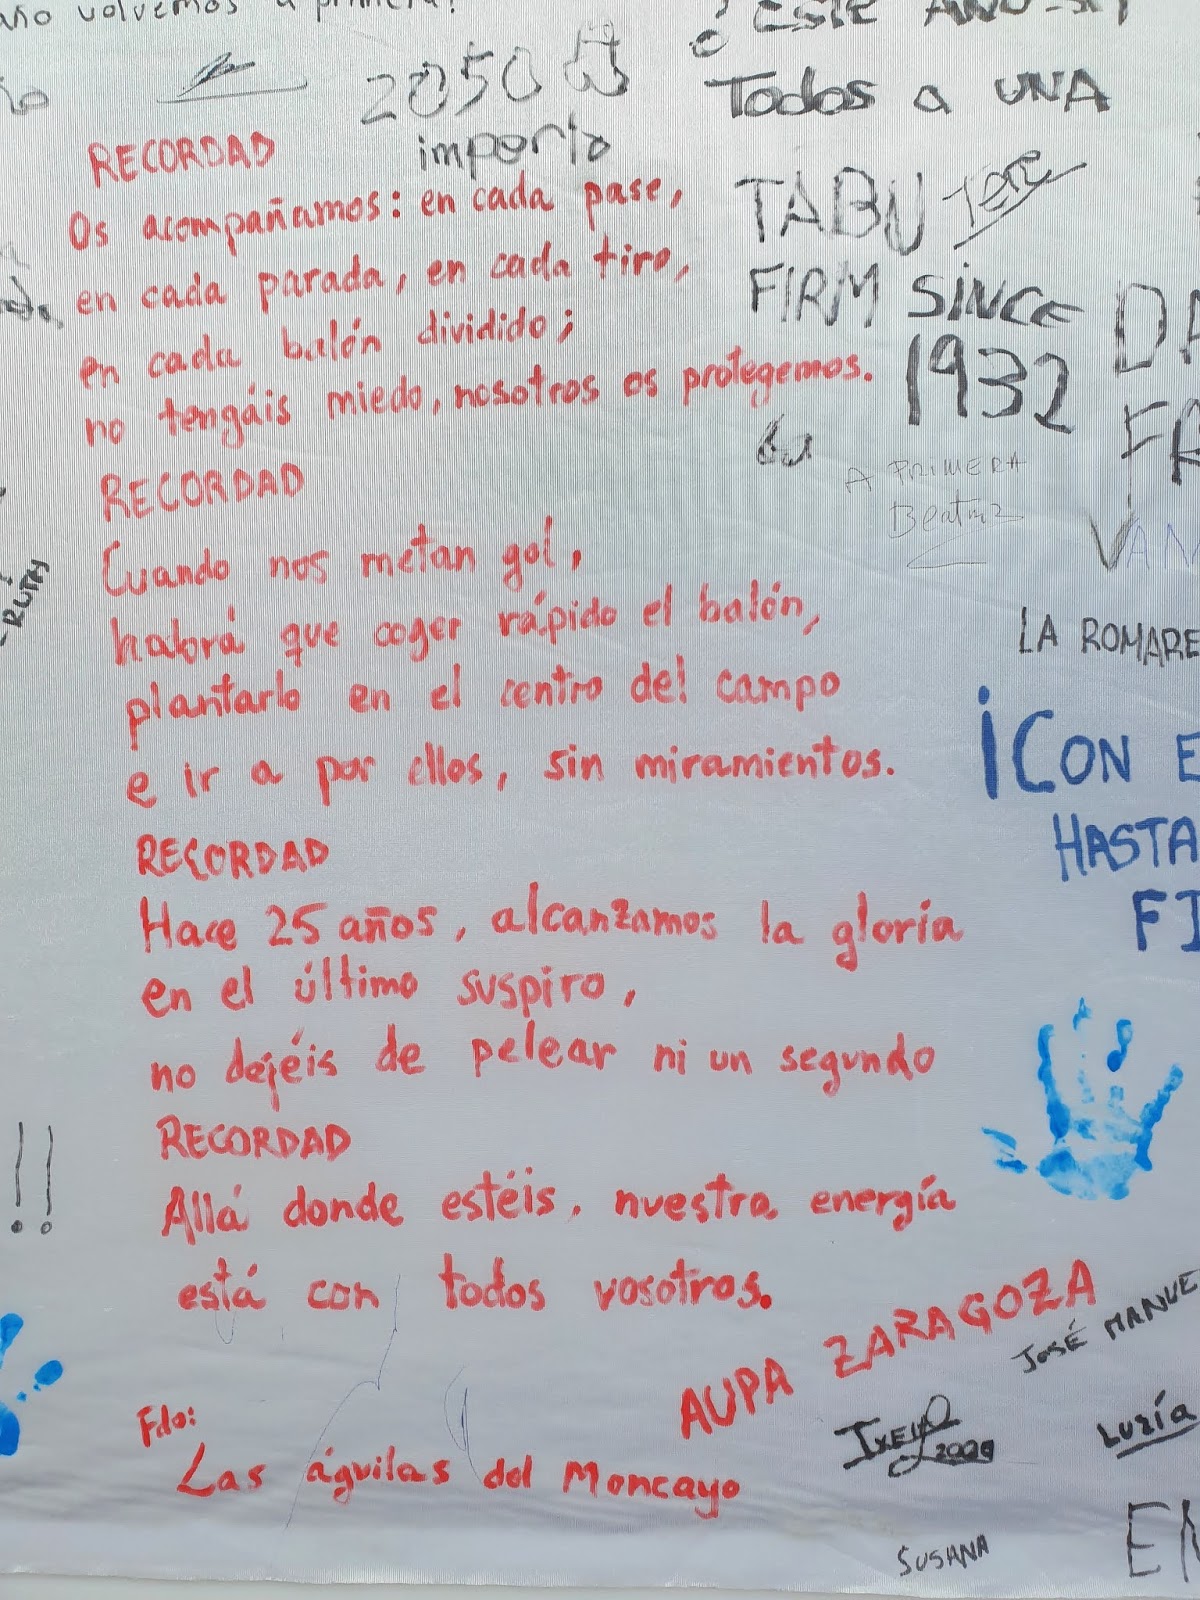 año volvemos a primera!
¿ESTE AÑO SÍ
Todos a UNA
2050
importa
TABU
FIRM SINCE
1932
A PRIMERA
Beatriz
RECORDAD
Os acompañamos: en cada pase,
en cada parada, en cada tiro,
en cada balón dividido;
no tengáis miedo, nosotros os protegemos.
RECORDAD
Cuando nos metan gol,
habrá que coger rápido el balón,
plantarlo en el centro del campo
e ir a por ellos, sin miramientos.
RECORDAD
Hace 25 años, alcanzamos la gloria
en el último suspiro,
no dejéis de pelear ni un segundo
RECORDAD
Allá donde estéis, nuestra energía
está con todos vosotros.
AUPA ZARAGOZA
Fdo:
Las águilas del Moncayo
RUTH
!!
LA ROMARE
¡CON E
HASTA
FI
JOSÉ MANUE
LUZÍA
SUSANA
EN